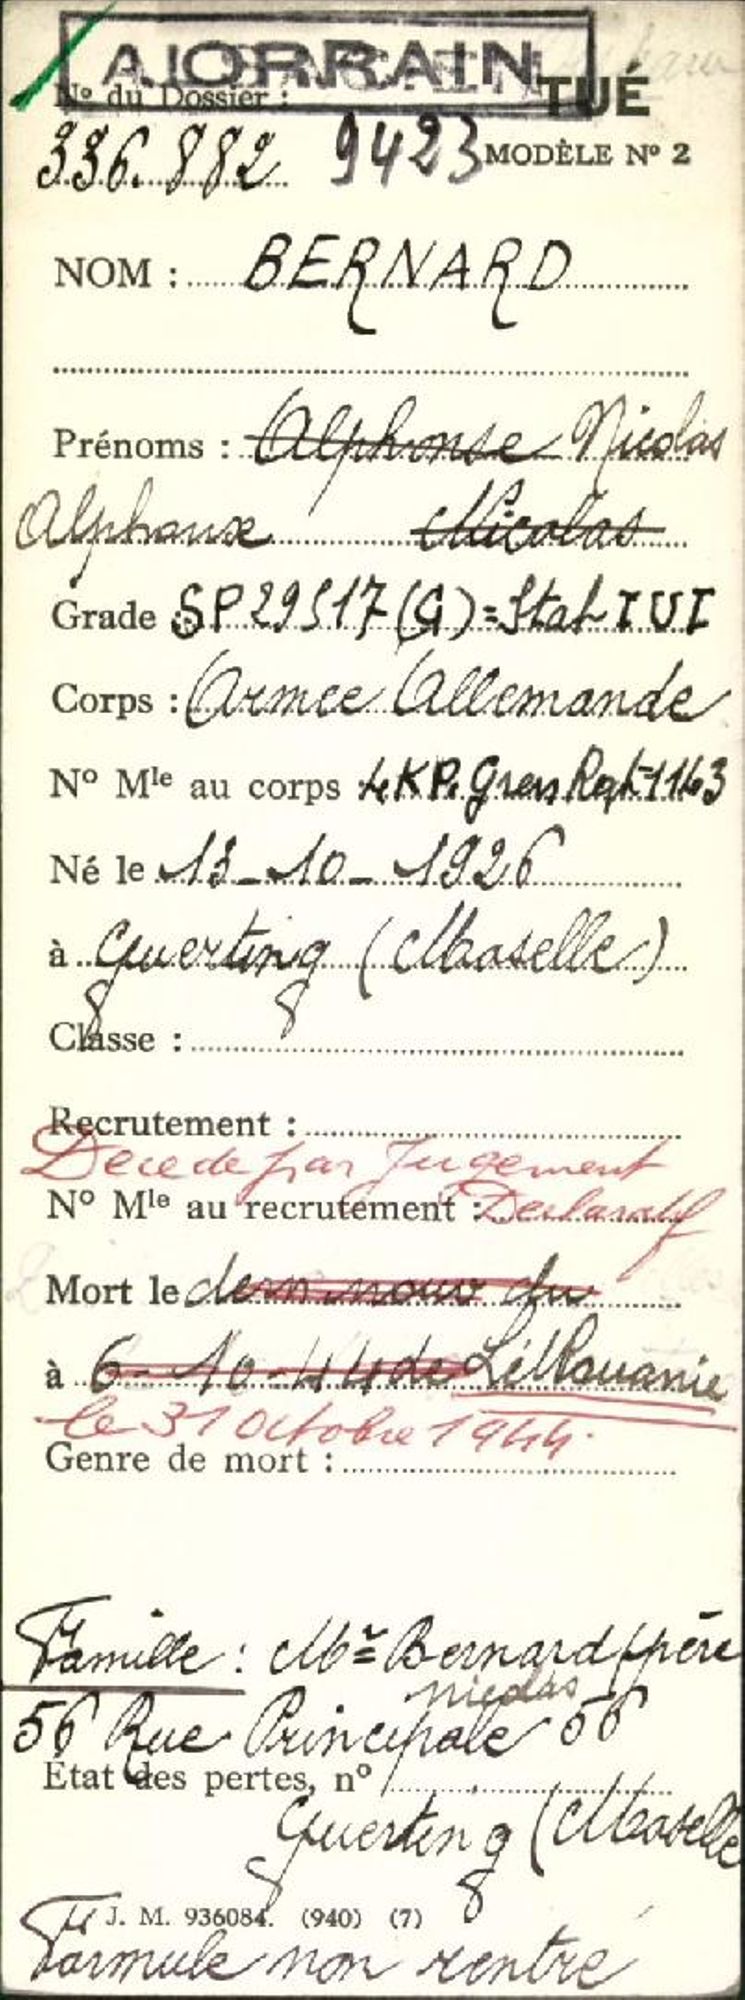 N° du Dossier :
TUÉ
336.882 9423 MODÈLE N° 2
NOM : BERNARD
Prénoms : Alphonse Nicolas
Alphonse Nicolas
Grade : SP 29517 (G) = Stab I U I
Corps : Armee Allemande
N° Mle au corps 4 KP. Gren Regt 1163
Né le 13-10-1926
à Guerting (Moselle)
Classe :
Recrutement :
Décédé par Jugement
N° Mle au recrutement : Déclaratif
Mort le dern nouv du
à 6-10-44 de Lithouanie
le 31 Octobre 1944.
Genre de mort :
Famille : Mr Bernard (père
Nicolas
56 Rue Principale 56
État des pertes, n°
Guerting (Moselle
J. M. 936084. (940) (7)
Formule non rentré